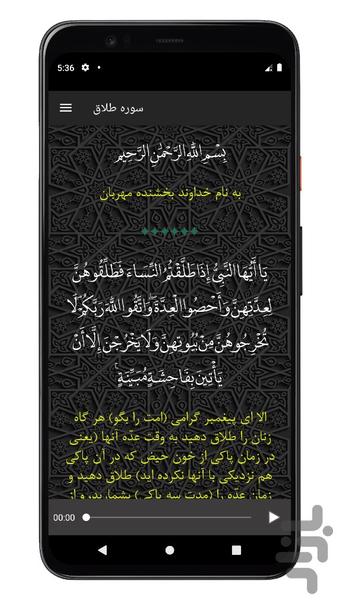 5:36
سوره طلاق
بِسْمِ اللَّهِ الرَّحْمَٰنِ الرَّحِيمِ
به نام خداوند بخشنده مهربان
يَا أَيُّهَا النَّبِيُّ إِذَا طَلَّقْتُمُ النِّسَاءَ فَطَلِّقُوهُنَّ
لِعِدَّتِهِنَّ وَأَحْصُوا الْعِدَّةَ وَاتَّقُوا اللَّهَ رَبَّكُمْ لَا
تُخْرِجُوهُنَّ مِنْ بُيُوتِهِنَّ وَلَا يَخْرُجْنَ إِلَّا أَنْ
يَأْتِينَ بِفَاحِشَةٍ مُبَيِّنَةٍ ۚ
الا ای پیغمبر گرامی (امت را بگو) هر گاه
زنان را طلاق دهید به وقت عدّه آنها (یعنی
در زمان پاکی از خون حیض که در آن پاکی
هم نزدیکی با آنها نکرده اید) طلاق دهید و
زمان عدّه را (مدت سه پاکی) بشمارید، و از
00:00
بازار